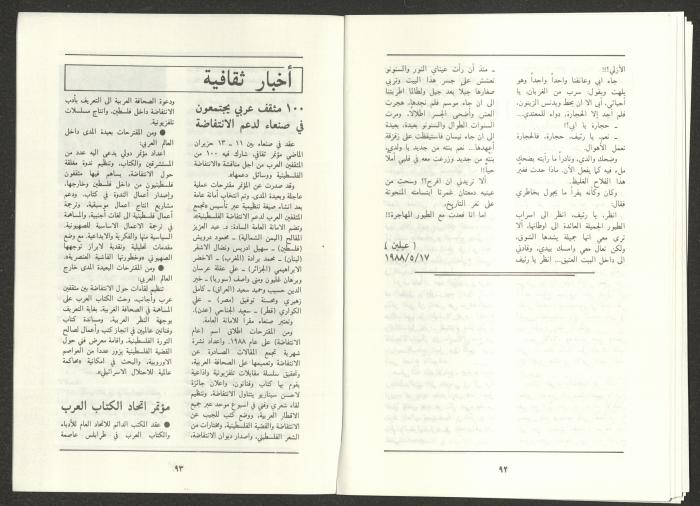 الأزلي!!
جاء أبي وعانقنا واحداً واحداً وهو
يلهث ويقول: سرب من الغربان، يا
أحبائي، أبى الا ان يحط ويدنس الزيتون،
فلم أجد إلا الحجارة، دواء للمعتدي...
ـ حجارة يا ابي؟!
ـ نعم، يا رثيف، حجارة. فالحجارة
تعمل الأهوال.
وضحك والدي، ونادراً ما رأيته يضحك
ملء فيه كما يفعل الآن. ماذا حدث ففتير
هذا الفلاح الغليظ.
وكان وكأنه يقرأ ما يجول بخاطري
فقال:
ـ انظر، يا رثيف، انظر الى اسراب
الطيور الجميلة العائدة الى اوطانها. ألا
ترى معي انها جميلة يشدها الشوق.
ولكن تعال معي وامسك بيدي، وقادني
الى داخل البيت العتيق... انظر يا رثيف
ـ منذ أن رأت عيناي النور والسنونو
تعشش على جسر هذا البيت وتربي
صغارها جيلا بعد جيل ولطالما اطربتنا
الى ان جاء موسم فلم نجدها، هجرت
العش وأضحى الجسر اطلالا، ومرت
السنوات الطوال والسنونو بعيدة، بعيدة
الى ان جاء نيسان فاستيقظت على زقزقة
أعهدها... نعم بنته من جديد يا ولدي،
بنته من جديد وزرعت معه في قلبي أملا
حياً!!
ألا تريدني ان افرح؟! وسحت من
عينيه دمعتان غمرتا ابتسامته المنحوتة
على ثغر التاريخ.
اما انا فعدت مع الطيور المهاجرة!!
( عبلين )
١٩٨٨/٥/١٧
٩٢
أخبار ثقافية
١٠٠ مثقف عربي يجتمعون
في صنعاء لدعم الانتفاضة
عقد في صنعاء بين ١١ ـ ١٣ حزيران
الماضي مؤتمر ثقافي، شارك فيه ١٠٠ من
المثقفين العرب من اجل مناقشة «الانتفاضة
الفلسطينية ووسائل دعمها».
وقد صدرت عن المؤتمر مقترحات عملية
عاجلة وبعيدة المدى. وتم انتخاب أمانة عامة
بعد انشاء صيغة تنظيمية عبر تأسيس «تجمع
المثقفين العرب لدعم الانتفاضة الفلسطينية».
وتضم الامانة العامة السادة: د. عبد العزيز
المقالح (اليمن الشمالية) ـ محمود درويش
(فلسطين) ـ سهيل ادريس ونضال الاشقر
(لبنان) ـ محمد برادة (المغرب) ـ الاخضر
الابراهيمي (الجزائر) ـ علي عقلة عرسان
وبرهان غليون ومنى واصف (سوريا) ـ خير
الدين حسيب وحميد سعيد (العراق) ـ كامل
زهيري ومحسنة توفيق (مصر) ـ علي
الكواري (قطر) ـ سعيد الجناحي (عدن).
وتعتبر صنعاء مقراً للأمانة العامة.
ومن المقترحات اطلاق اسم (عام
الانتفاضة) على عام ١٩٨٨. واعداد نشرة
شهرية تجمع المقالات الصادرة عن
الانتفاضة وتعميمها على الصحافة العربية،
وتحقيق سلسلة مقابلات تلفزيونية واذاعية
يقوم بها كتاب وفنانون، واعلان جائزة
لاحسن سيناريو يتناول الانتفاضة، وتنظيم
لقاء شعري وفني في اسبوع موحد عبر جميع
الاقطار العربية، ووضع كتب للجيب عن
الانتفاضة والقضية الفلسطينية، ومختارات من
الشعر الفلسطيني، واصدار ديوان الانتفاضة،
ودعوة الصحافة العربية الى التعريف بأدب
الانتفاضة داخل فلسطين، وانتاج مسلسلات
تلفزيونية.
● ومن المقترحات بعيدة المدى داخل
العالم العربي:
اعداد مؤتمر دولي يدعى اليه عدد من
المستشرقين والكتاب، وتنظيم ندوة مغلقة
حول الانتفاضة، يساهم فيها مثقفون
فلسطينيون من داخل فلسطين وخارجها،
واصدار أعمال الندوة في كتاب، ودعم
مشاريع انتاج أعمال موسيقية، وترجمة
أعمال فلسطينية الى لغات أجنبية، والمساهمة
في ترجمة الاعمال الاساسية للصهيونية،
السياسية منها والفكرية والابداعية، مع وضع
مقدمات تحليلية ونقدية لابراز توجهها
الصهيوني «وخطورتها الفاشية العنصرية».
● ومن المقترحات البعيدة المدى خارج
العالم العربي:
تنظيم لقاءات حول الانتفاضة بين مثقفين
عرب وأجانب، وحث الكتاب العرب على
المساهمة في الصحافة الغربية، بغاية التعريف
بوجهة النظر العربية، ومساعدة كتاب
وفنانين عالميين في انجاز كتب وأعمال لصالح
الثورة الفلسطينية، واقامة معرض فني حول
القضية الفلسطينية يزور عدداً من العواصم
الاوروبية، والبحث في امكانية «محاكمة
عالمية للاحتلال الاسرائيلي».
مؤتمر اتحاد الكتاب العرب
● عقد المكتب الدائم للاتحاد العام للأدباء
والكتاب العرب في طرابلس عاصمة
٩٣